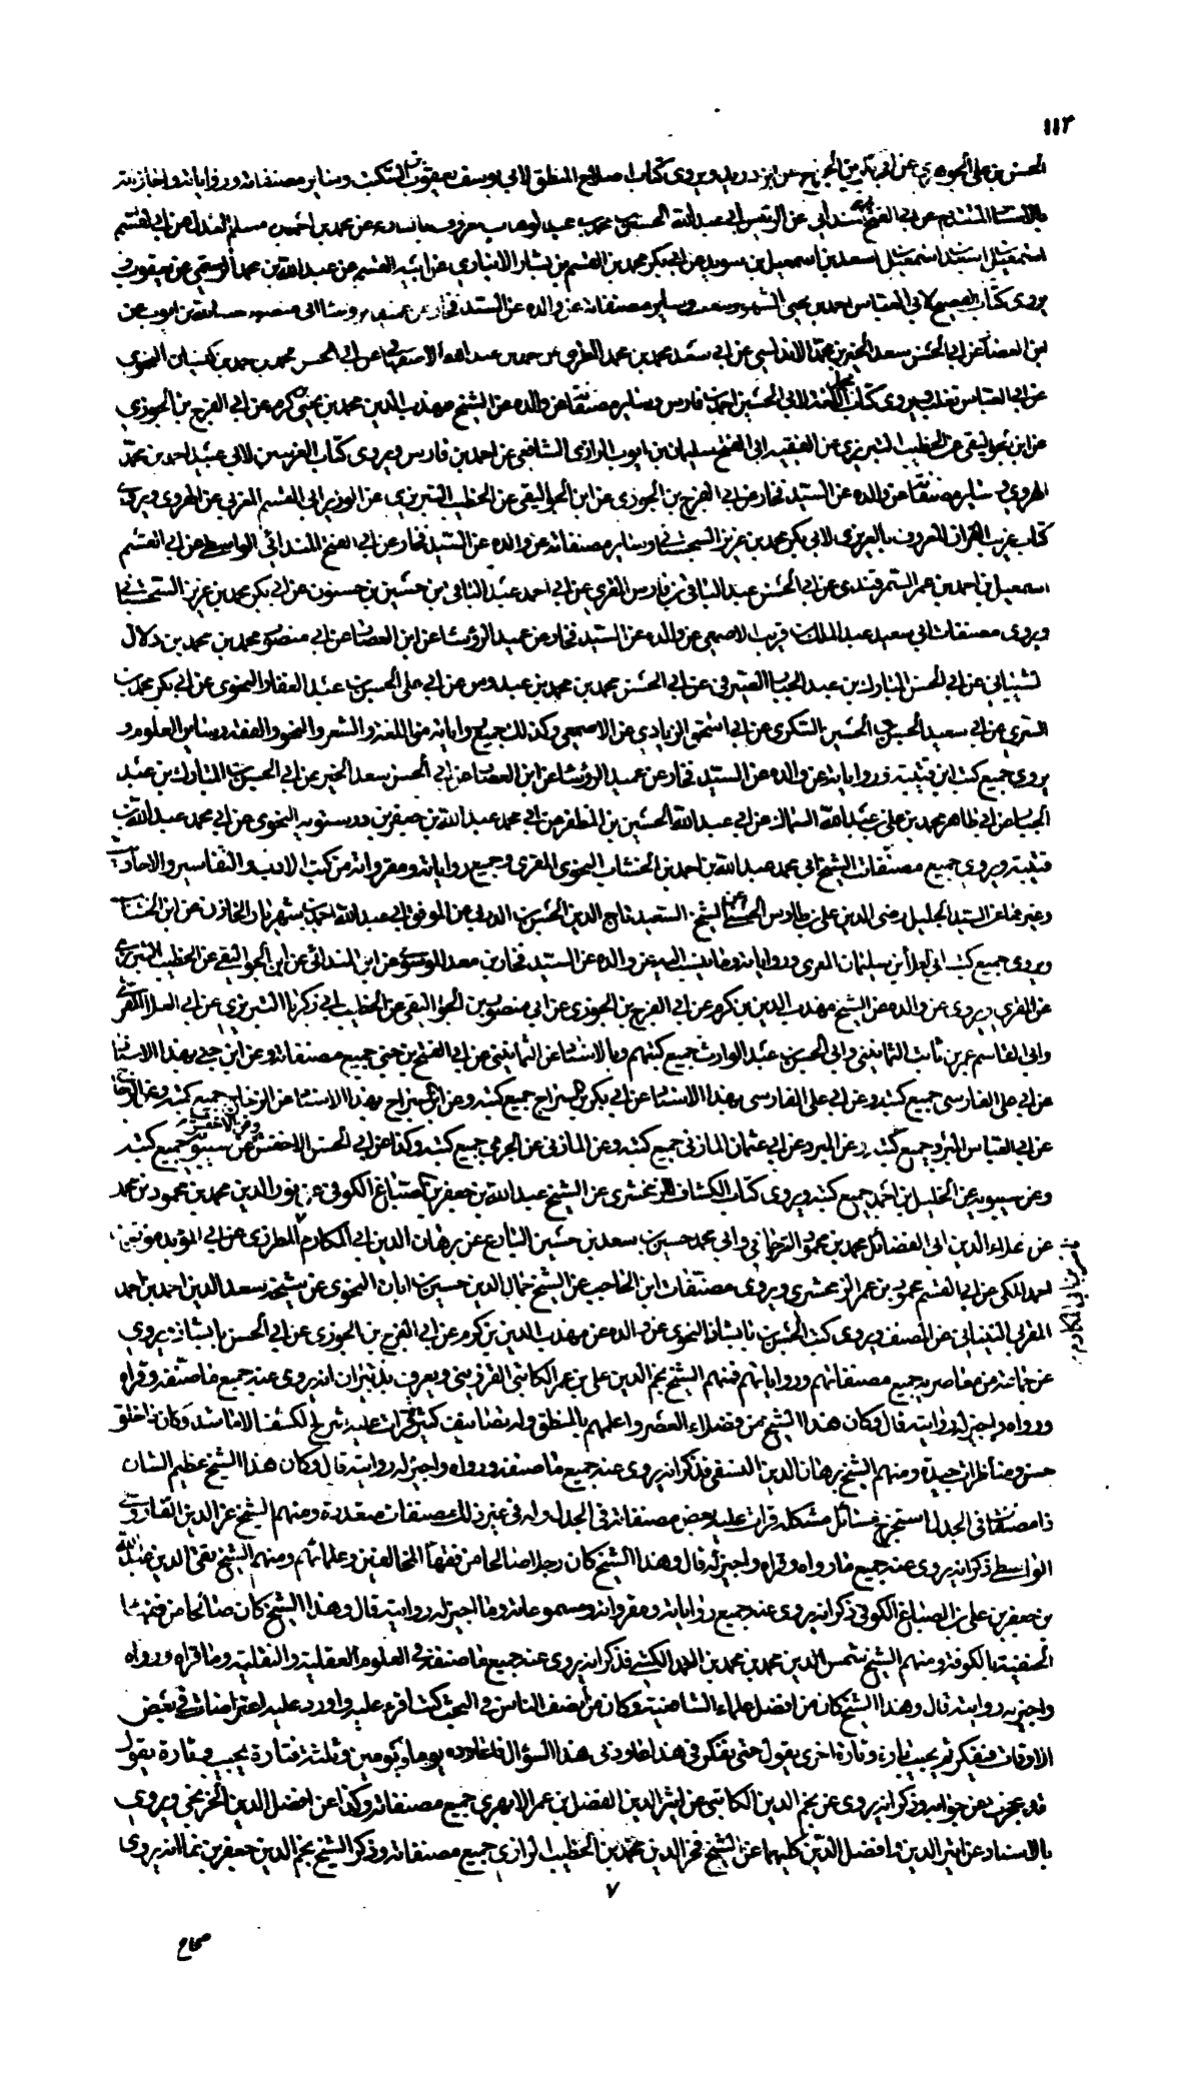 ١١٣
الحسن بن علي الجوهري عن ابي بكر بن الجراح عن ابن دريد ويروي كتاب اصلاح المنطق لابي يوسف يعقوب بن السكيت وسائر مصنفاته ورواياته واجازاته
بالاسناد المتقدم عن ابي الفتح الميداني عن الرئيس ابي عبد الله الحسين بن محمد بن عبد الوهاب عن محمد بن احمد بن مسلم المعدل عن ابي القسم
اسمعيل بن اسعد بن اسمعيل بن سويد عن ابي بكر محمد بن القسم بن بشار الانباري عن ابيه القسم عن عبد الله بن محمد الرستمي عن يعقوب و
يروي كتاب الفصيح لابي العباس احمد بن يحيى وسائر مصنفاته عن والده عن السيد فخار عن
ابن العصار عن ابي الحسن سعد الخير بن محمد الاندلسي عن ابي سعد محمد بن محمد المطرزي عن احمد بن عبد الله الاصفهاني عن ابي الحسن محمد بن احمد بن كيسان النحوي
عن ابي العباس ثعلب ويروي كتاب مجمل اللغة لابي الحسين احمد بن فارس وسائر مصنفاته عن والده عن الشيخ مهذب الدين محمد بن يحيى بن كرم عن ابي الفرج بن الجوزي
عن ابن الجواليقي عن الخطيب التبريزي عن الفقيه ابي الفتح سليمان بن ايوب الرازي الشافعي عن احمد بن فارس ويروي كتاب الغريبين لابي عبيد احمد بن محمد
الهروي وسائر مصنفاته عن والده عن السيد فخار عن ابي الفرج بن الجوزي عن ابن الجواليقي عن الخطيب التبريزي عن الوزير ابي القسم المغربي عن الهروي ويروي
كتاب غريب القران المعروف بالعزيزي لابي بكر محمد بن عزيز السجستاني وسائر مصنفاته عن والده عن السيد فخار عن ابي الفتح المندائي الواسطي عن ابي القسم
اسمعيل بن احمد بن عمر السمرقندي عن ابي الحسن عبد الباقي بن فارس المقري عن ابي احمد عبد الباقي بن حسين بن حسنون عن ابي بكر محمد بن عزيز السجستاني
ويروي مصنفات ابي سعيد عبد الملك بن قريب الاصمعي عن والده عن السيد فخار عن عميد الرؤسا عن ابن العصار عن ابي منصور محمد بن محمد بن دلال
الشيباني عن ابي الحسن المبارك بن عبد الجبار الصيرفي عن ابي الحسن محمد بن محمد بن عبدوس عن ابي علي الحسن بن عبد الغفار النحوي عن ابي بكر محمد بن
السري عن ابي سعيد الحسن بن الحسين السكري عن ابي اسحق الزيادي عن الاصمعي وكذلك جميع رواياته من اللغة والشعر والنحو والفقه وسائر العلوم و
يروي جميع كتب ابن قتيبة ورواياته عن والده عن السيد فخار عن عميد الرؤسا عن ابن العصار عن ابي الحسن سعد الخير عن ابي الحسين المبارك بن عبد
الجبار عن ابي طاهر محمد بن علي بن عبد الله السماك عن ابي عبد الله الحسين بن المظفر عن ابي محمد عبد الله بن جعفر بن درستويه النحوي عن ابي محمد عبد الله بن
قتيبة ويروي جميع مصنفات الشيخ ابي محمد عبد الله بن احمد بن الخشاب النحوي المقري وجميع رواياته ومقرواته من كتب الادب والتفاسير والاحاديث
وغيرها عن السيد الجليل رضي الدين علي بن طاوس الحسني عن الشيخ السعيد تاج الدين الحسن بن الدربي عن الموفق ابي عبد الله احمد بن شهريار الخازن عن ابن الخشاب
ويروي جميع كتب ابي العلا بن سليمان المعري ورواياته وما ينسب اليه عن والده عن السيد فخار بن معد الموسوي عن ابن المندائي عن ابن الجواليقي عن الخطيب التبريزي
عن المعري ويروي عن والده عن الشيخ مهذب الدين بن كرم عن ابي الفرج بن الجوزي عن ابي منصور بن الجواليقي عن الخطيب ابي زكريا التبريزي عن ابي العلا المعري
وابي القاسم عمر بن ثابت الثمانيني وابي الحسين بن عبد الوارث جميع كتبهم وبالاسناد عن الثمانيني عن ابي الفتح بن جني جميع مصنفاته وعن ابن جني بهذا الاسناد
عن ابي علي الفارسي جميع كتبه وعن ابي علي الفارسي بهذا الاسناد عن ابي بكر بن السراج جميع كتبه وعن ابن السراج بهذا الاسناد عن الزجاج جميع كتبه وعن الزجاج
عن ابي العباس المبرد جميع كتبه وعن المبرد عن ابي عثمان المازني جميع كتبه وعن المازني عن الجرمي جميع كتبه وكذا عن ابي الحسن الاخفش وعن الاخفش عن سيبويه جميع كتبه
وعن سيبويه عن الخليل بن احمد جميع كتبه ويروي كتاب الكشاف للزمخشري عن الشيخ عبد الله بن جعفر بن الصباغ الكوفي عن نور الدين محمد بن محمود بن محمد
عن علاء الدين ابي الفضائل محمد بن محمود الترجماني وابي محمد حسين بن سعد بن حسين البارع عن برهان الدين ابي المكارم المطرزي عن ابي المؤيد موفق بن
احمد المكي عن ابي القسم محمود بن عمر الزمخشري ويروي مصنفات ابن الحاجب عن الشيخ جمال الدين حسين بن ابان النحوي عن شيخه سعد الدين احمد بن احمد
المقري النيسابي عن المصنف ويروي كتب الحسن بن بابشاذ النحوي عن والده عن مهذب الدين بن كرم عن ابي الفرج بن الجوزي عن ابي الحسن بابشاذ ويروي
عن جماعة من معاصريه جميع مصنفاتهم ورواياتهم فمنهم الشيخ نجم الدين علي بن عمر الكاتبي القزويني ويعرف بدبيران انه يروي عنه جميع ما صنفه وقراه
ورواه واجيز له روايته قال وكان هذا الشيخ من فضلاء العصر واعلمهم بالمنطق وله تصانيف كثيرة قرات عليه شرح الكشف الا ما شذ وكان ذا خلق
حسن ومناظرات جيدة ومنهم الشيخ برهان الدين النسفي فذكر انه يروي عنه جميع ما صنفه ورواه واجيز له روايته قال وكان هذا الشيخ عظيم الشان
ذا مصنفات في الجدل استخرج مسائل مشكله قرات عليه بعض مصنفاته في الجدل وله في غير ذلك مصنفات متعددة ومنهم الشيخ عز الدين الفاروثي
الواسطي ذكر انه يروي عنه جميع ما رواه وقراه واجيز له قال وهذا الشيخ كان رجلا صالحا من فقهاء المخالفين وعلمائهم ومنهم الشيخ تقي الدين عبد الله
بن جعفر بن علي بن الصباغ الكوفي ذكر انه يروي عنه جميع رواياته ومقرواته ومسموعاته وما اجيز له روايته قال وهذا الشيخ كان صالحا من فقهاء
الحنفية بالكوفة ومنهم الشيخ شمس الدين محمد بن محمد بن احمد الكيشي فذكر انه يروي عنه جميع ما صنفه في العلوم العقلية والنقلية وما قراه ورواه
واجيز له روايته قال وهذا الشيخ كان من افضل علماء الشافعية وكان من انصف الناس في البحث كنت اقرء عليه واورد عليه اعتراضات في بعض
الاوقات فيفكر ثم يجيب تارة وتارة اخرى يقول حتى نفكر في هذا عاودني هذا السؤال فاعاوده يوما ويومين وثلثة فتارة يجيب وتارة يقول
قد عجزت عن جوابه وذكر انه يروي عن نجم الدين الكاتبي عن اثير الدين الفضل بن عمر الابهري جميع مصنفاته وكذا عن افضل الدين الخونجي ويروي
بالاسناد عن اثير الدين وافضل الدين كليهما عن الشيخ فخر الدين محمد بن الخطيب الرازي جميع مصنفاته وذكر الشيخ نجم الدين جعفر بن نما انه يروي
٧
صحاح